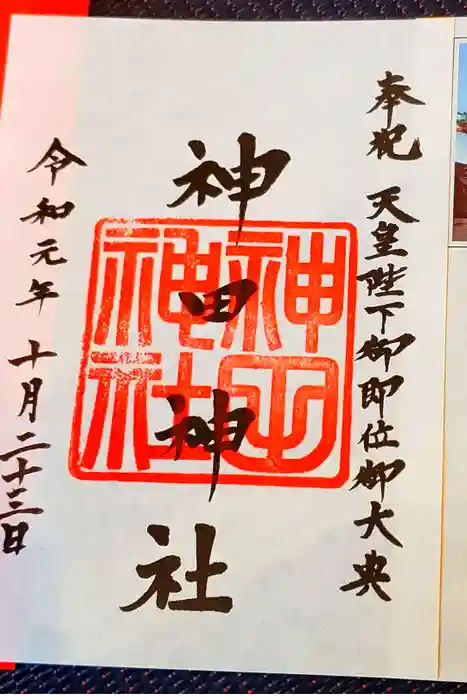 奉祝 天皇陛下御即位御大典
神田神社
神田神社
令和元年 十月二十三日